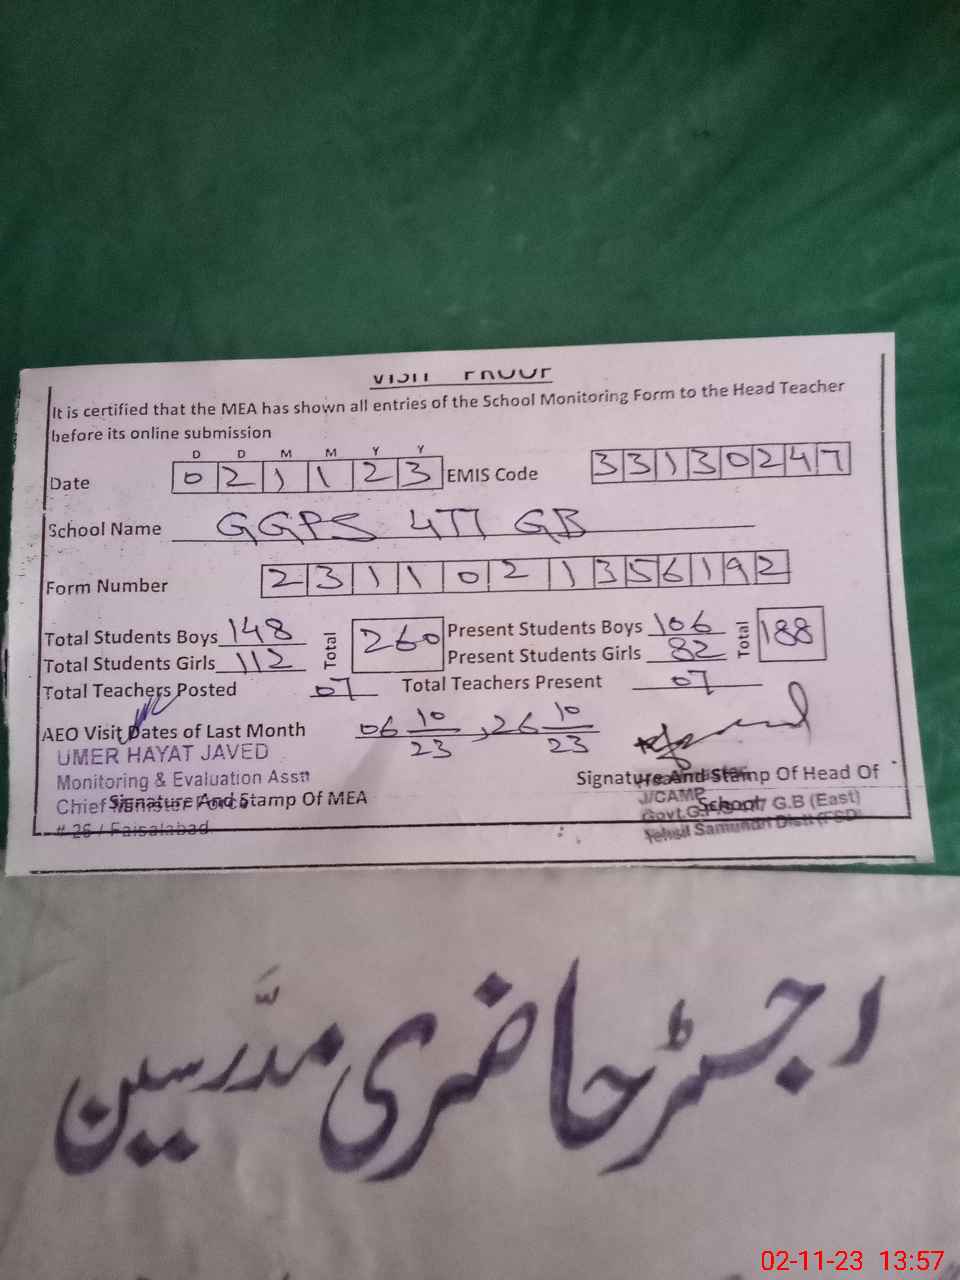 VISIT PROOF
It is certified that the MEA has shown all entries of the School Monitoring Form to the Head Teacher
before its online submission
D D M M Y Y
Date 0 2 1 1 2 3 EMIS Code 3 3 1 3 0 2 4 7
School Name GGPS 477 GB
Form Number 2 3 1 1 0 2 1 3 5 6 1 9 2
Total Students Boys 148 Total 260 Present Students Boys 106 Total 188
Total Students Girls 112 Present Students Girls 82
Total Teachers Posted 07 Total Teachers Present 07
AEO Visit Dates of Last Month 06 10/23, 26 10/23
UMER HAYAT JAVED
Monitoring & Evaluation Asstt
Signature And Stamp Of Head Of
School
Chief Minister
Signature And Stamp Of MEA
# 26 / Faisalabad
G.B (East)
Tehsil Samundri Distt
رجسٹر حاضری مدرّسین
02-11-23 13:57